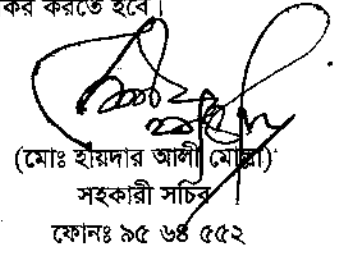 কর করতে হবে।
(মোঃ হায়দার আলী মোল্লা)
সহকারী সচিব
ফোনঃ ৯৫ ৬৪ ৫৫২